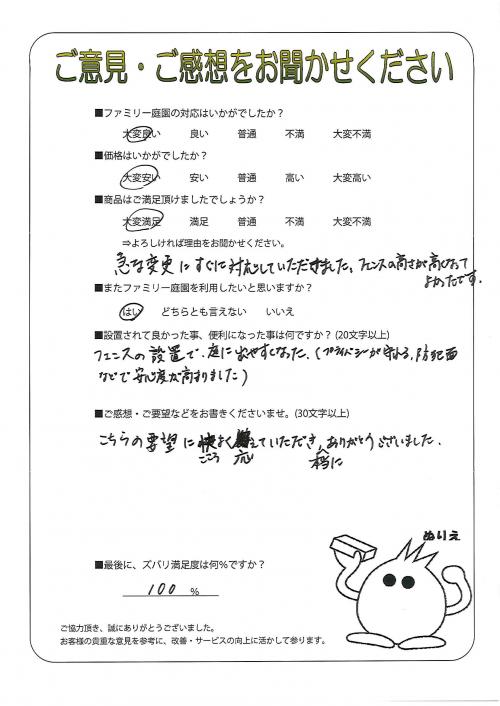 ご意見・ご感想をお聞かせください
■ファミリー庭園の対応はいかがでしたか？
大変良い 良い 普通 不満 大変不満
■価格はいかがでしたか？
大変安い 安い 普通 高い 大変高い
■商品はご満足頂けましたでしょうか？
大変満足 満足 普通 不満 大変不満
⇒よろしければ理由をお聞かせください。
急な変更にすぐに対応していただきました。フェンスの高さが高くなって
よかったです。
■またファミリー庭園を利用したいと思いますか？
はい どちらとも言えない いいえ
■設置されて良かった事、便利になった事は何ですか？(20文字以上)
フェンスの設置で、庭に出やすくなった。(プライバシーが守れる、防犯面
などで安心度が高まりました)
■ご感想・ご要望などをお書きくださいませ。(30文字以上)
こちらの要望に よく えていただき、ありがとうございました。
こころ 応 本当に
ぬりえ
■最後に、ズバリ満足度は何％ですか？
100 %
ご協力頂き、誠にありがとうございました。
お客様の貴重な意見を参考に、改善・サービスの向上に活かして参ります。